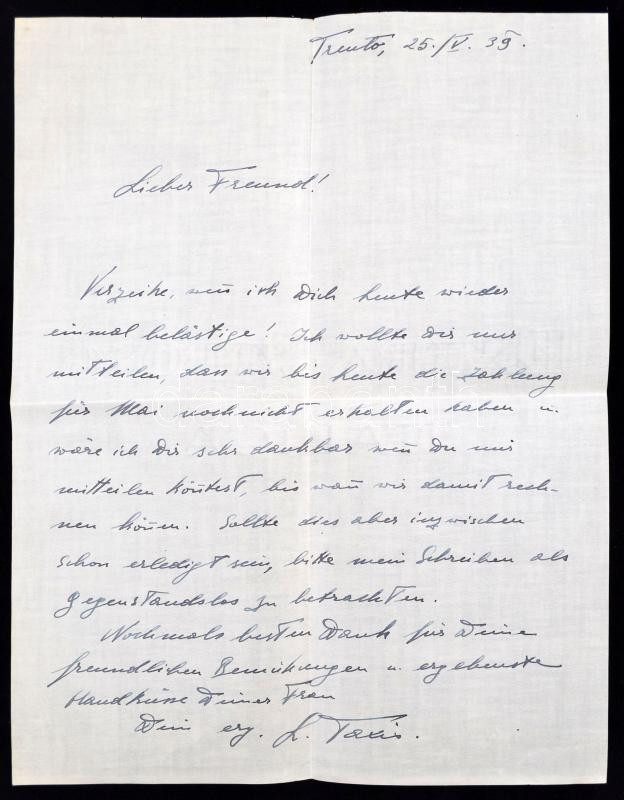 Trento, 25./V. 39.
Lieber Freund!
Verzeihe, wen̅ ich Dich heute wieder
einmal belästige! Ich wollte Dir nur
mitteilen, dass wir bis heute die Zahlung
für Mai nochnicht erhalten haben u.
wäre ich Dir sehr dankbar wen̅ Du mir
mitteilen kön̅test, bis wan̅ wir damit rech-
nen kön̅en. Sollte dies aber inzwischen
schon erledigt sein, bitte mein Schreiben als
Gegenstandslos zu betrachten.
Nochmals besten Dank für Deine
freundlichen Bemühungen u. ergebenste
Handküsse Deiner Frau
Dein erg. L. Taxis.